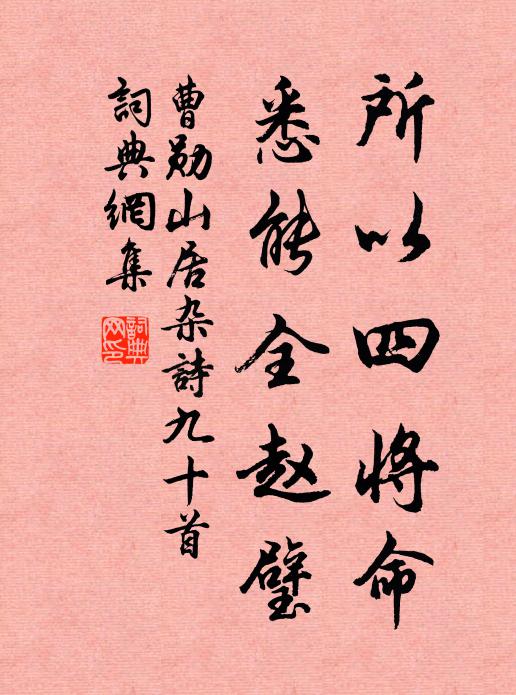 所以四将命
悉能全赵璧
曹勛山居杂詩九十首
詞典網集
詞典網印